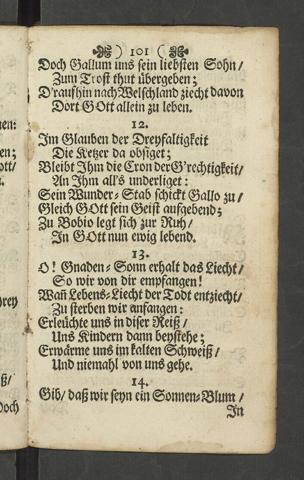 ) 101 (
Doch Gallum uns sein liebsten Sohn/
Zum Trost thut übergeben;
D'raufhin nach Welschland ziecht davon
Dort GOtt allein zu leben.
12.
Im Glauben der Dreyfaltigkeit
Die Ketzer da obsiget;
Bleibt Ihm die Cron der G'rechtigkeit/
An Ihm all's underliget:
Sein Wunder-Stab schickt Gallo zu/
Gleich GOtt sein Geist aufgebend;
Zu Bobio legt sich zur Ruh/
In GOtt nun ewig lebend.
13.
O! Gnaden-Sonn erhalt das Liecht/
So wir von dir empfangen!
Wañ Lebens-Liecht der Todt entziecht/
Zu sterben wir anfangen:
Erleüchte uns in diser Reiß/
Uns Kindern dann beystehe;
Erwärme uns im kalten Schweiß/
Und niemahl von uns gehe.
14.
Gib/ daß wir seyn ein Sonnen-Blum/
In